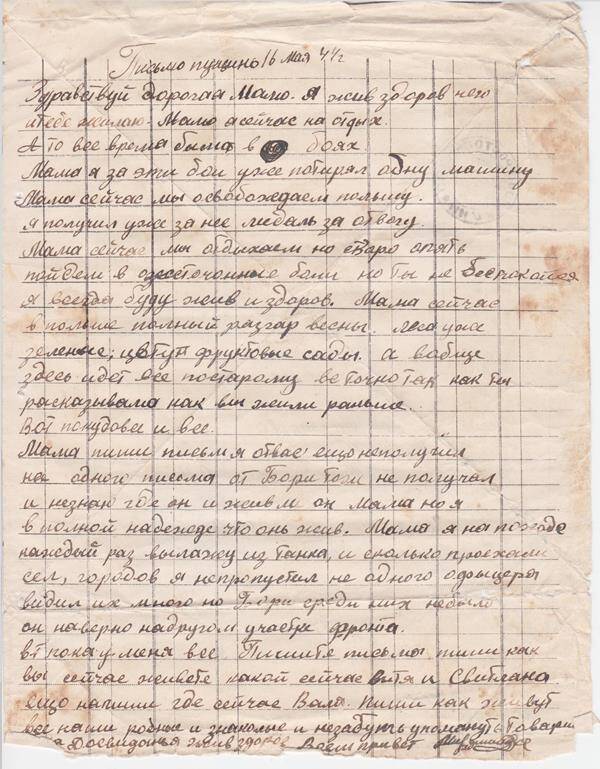 Письмо пущено 16 мая 44г
Здравствуй дорогая Мамо. Я жив здоров чего
и тебе желаю. Мамо а сейчас на отдых.
А то все время был в боях.
Мама я за эти бои уже потирал одну машину
Мама сейчас мы освобождаем польшу.
Я получил уже за нее мидаль за отвогу.
Мама сейчас мы отдыхаем но скоро опять
пойдем в озесточонные боии но ты не беспокойся
я всегда буду жив и здоров. Мама сейчас
в польше полный разгар весны. леса уже
зеленые, цвтут фруктовые сады. а вобще
здесь идет все постарому все точно так как ты
расказывала как вы жили раньше.
Вот покудова и все.
Мама пиши письмя отвас ещо неполучил
на одного писома от Бори тоже не получал
и незнаю где он и живли он Мама но я
в полной надежде что онь жив. Мама я на походе
каждый раз вылажу из танка, и сколько проехали
сел, городов я непропустил не одного офыцера
видил их много но Бори среди них небыло
он наверно надругом участке фронта.
вт пока у мена все Пишите письма пиши как
вы сейчас живете какой сейчас витя и Свитлана
ещо напиши где сейчас Валя. пиши как живут
все наши родные и знакомые и незабудть упомянуть Товарищ
а Досвидонья жив здоров Всем привет